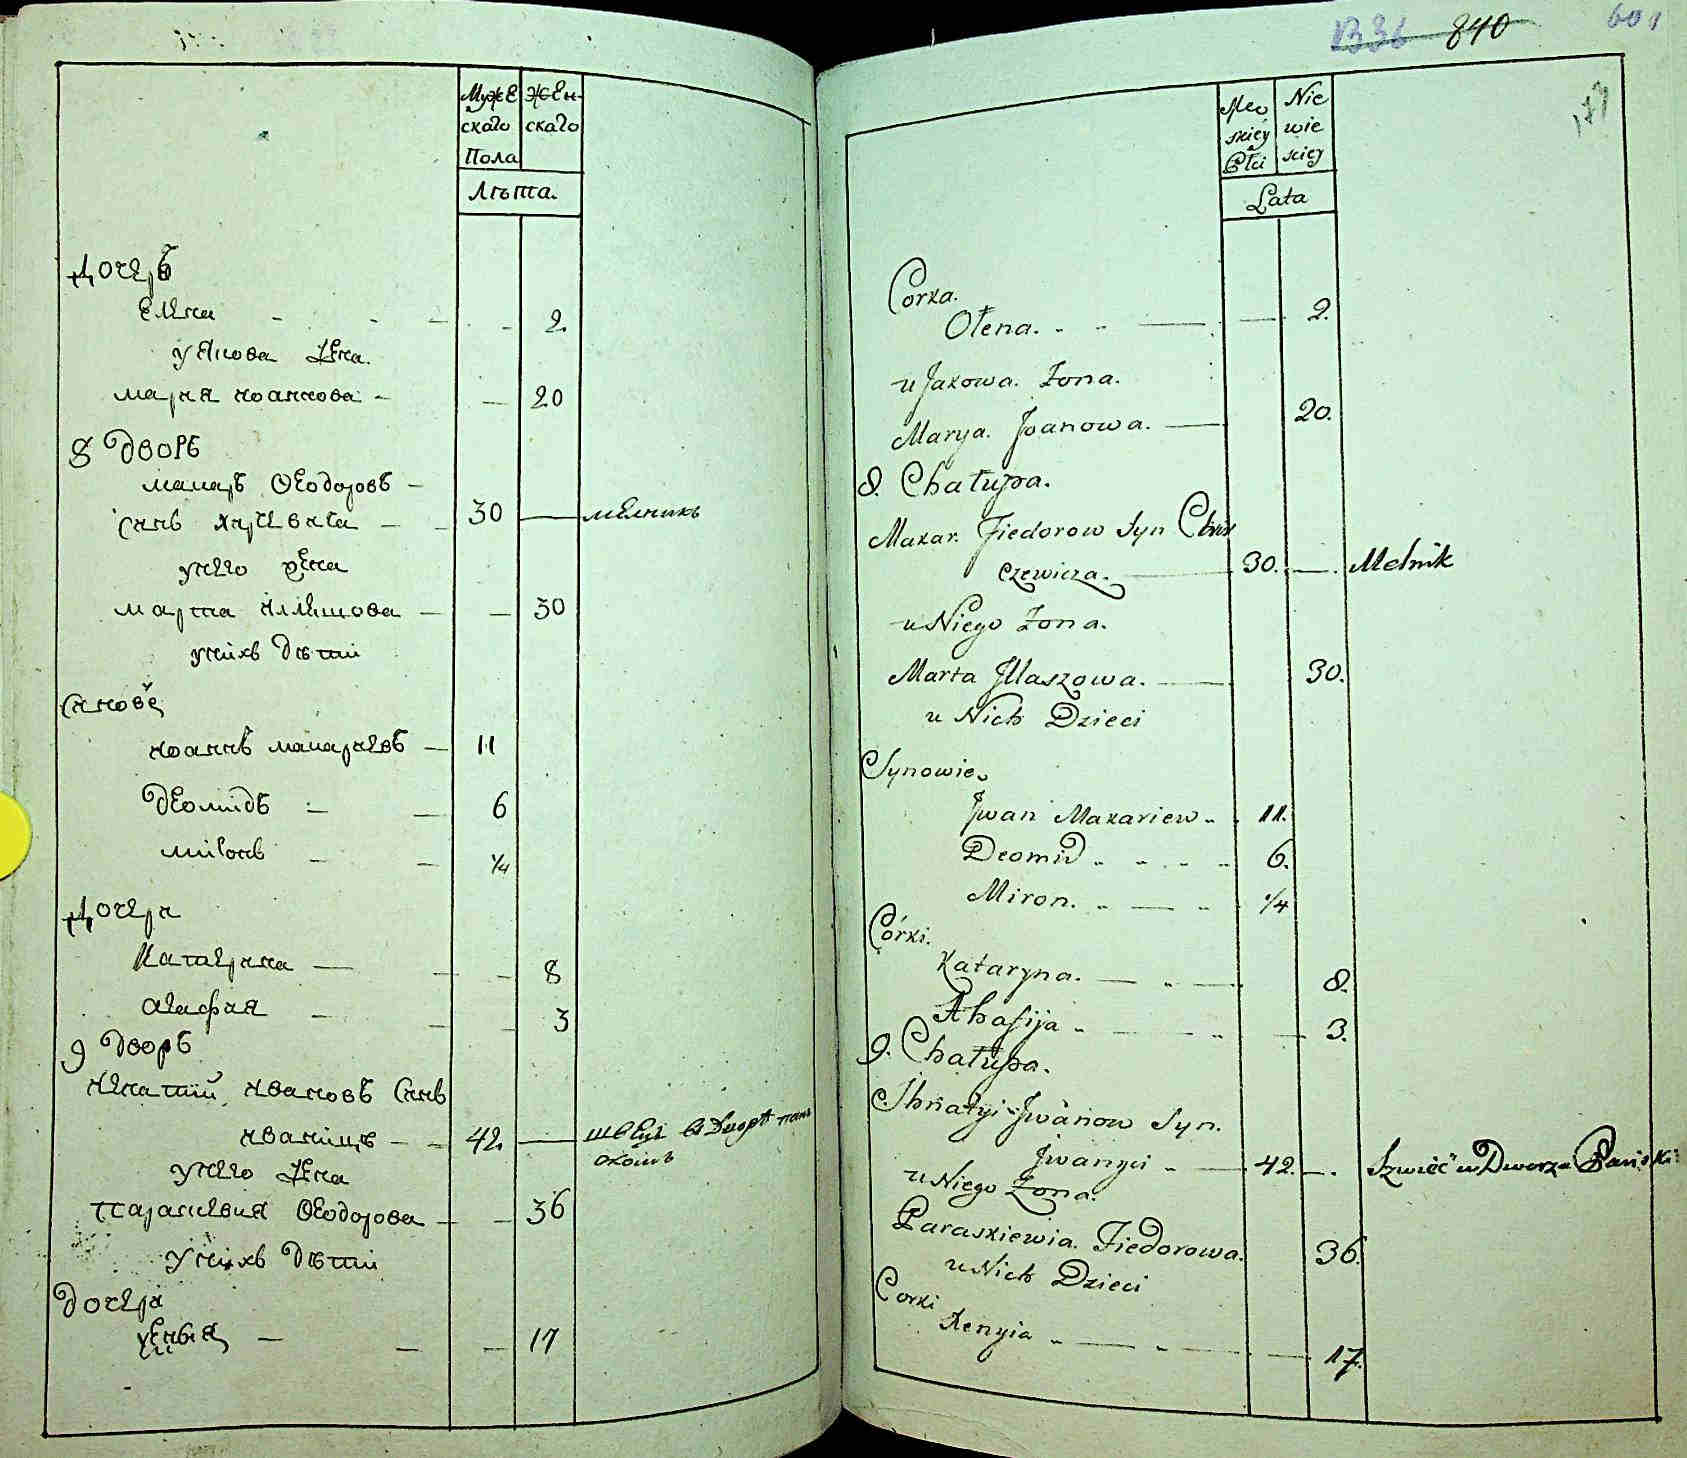 Муже Жен-
скаго скаго
Пола
Лѣта.
Дочерь
Елена - - - - 2.
у Якова Жена.
Мария Иоаннова - - 20
8 Дворъ
Макаръ Ѳеодоровъ -
Синъ - - 30 — мелникъ
у него жена
Марта Илляшова - - 30
у нихъ дѣти
Синовѣ
Иоаннъ Макариевъ - 11
Деомидъ - - 6
Миронъ - - 1/4
Дочери
Катерина - - - 8
Агафия - - - 3
9 Дворъ
Игнатий Ивановъ Синъ
Иваницъ - - 42. — швецъ в Дворѣ пан
скомъ
у него Жена
Параскевия Ѳеодорова - - 36
у нихъ дѣти
Дочери
Ксения - - - 17
1336 840
601
Męz Nie
skiey wie
Płci sciey
Lata
Corka.
Ołena. - - — — 2.
u Jakowa. Zona.
Marya. Jwanowa. — 20.
8. Chałupa.
Makar. Fiedorow Syn
czewicza. — 30. — Melnik
u Niego Zona.
Marta Jllaszowa. — 30.
u Nich Dzieci
Synowie
Jwan Makariew - - 11.
Deomid - - - - 6.
Miron. - — - 1/4
Córki.
Kataryna. — - — 8.
Ahafija - — - - — 3.
9. Chałupa.
Jhnatyi Jwanow Syn.
Jwanyci - — 42. — Szwiec w Dworze Panski
u Niego Zona.
Paraskiewia. Fiedorowa. 36.
u Nich Dzieci
Corki
Xenyia - — - — — 17.